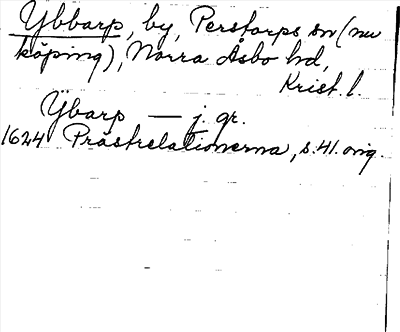 Ybbarp, by, Perstorps sn (nu
köping), Norra Åsbo hd,
Krist. l.
Ÿbarp — j. gr.
1624 Prästrelationerna, s. 41. orig.